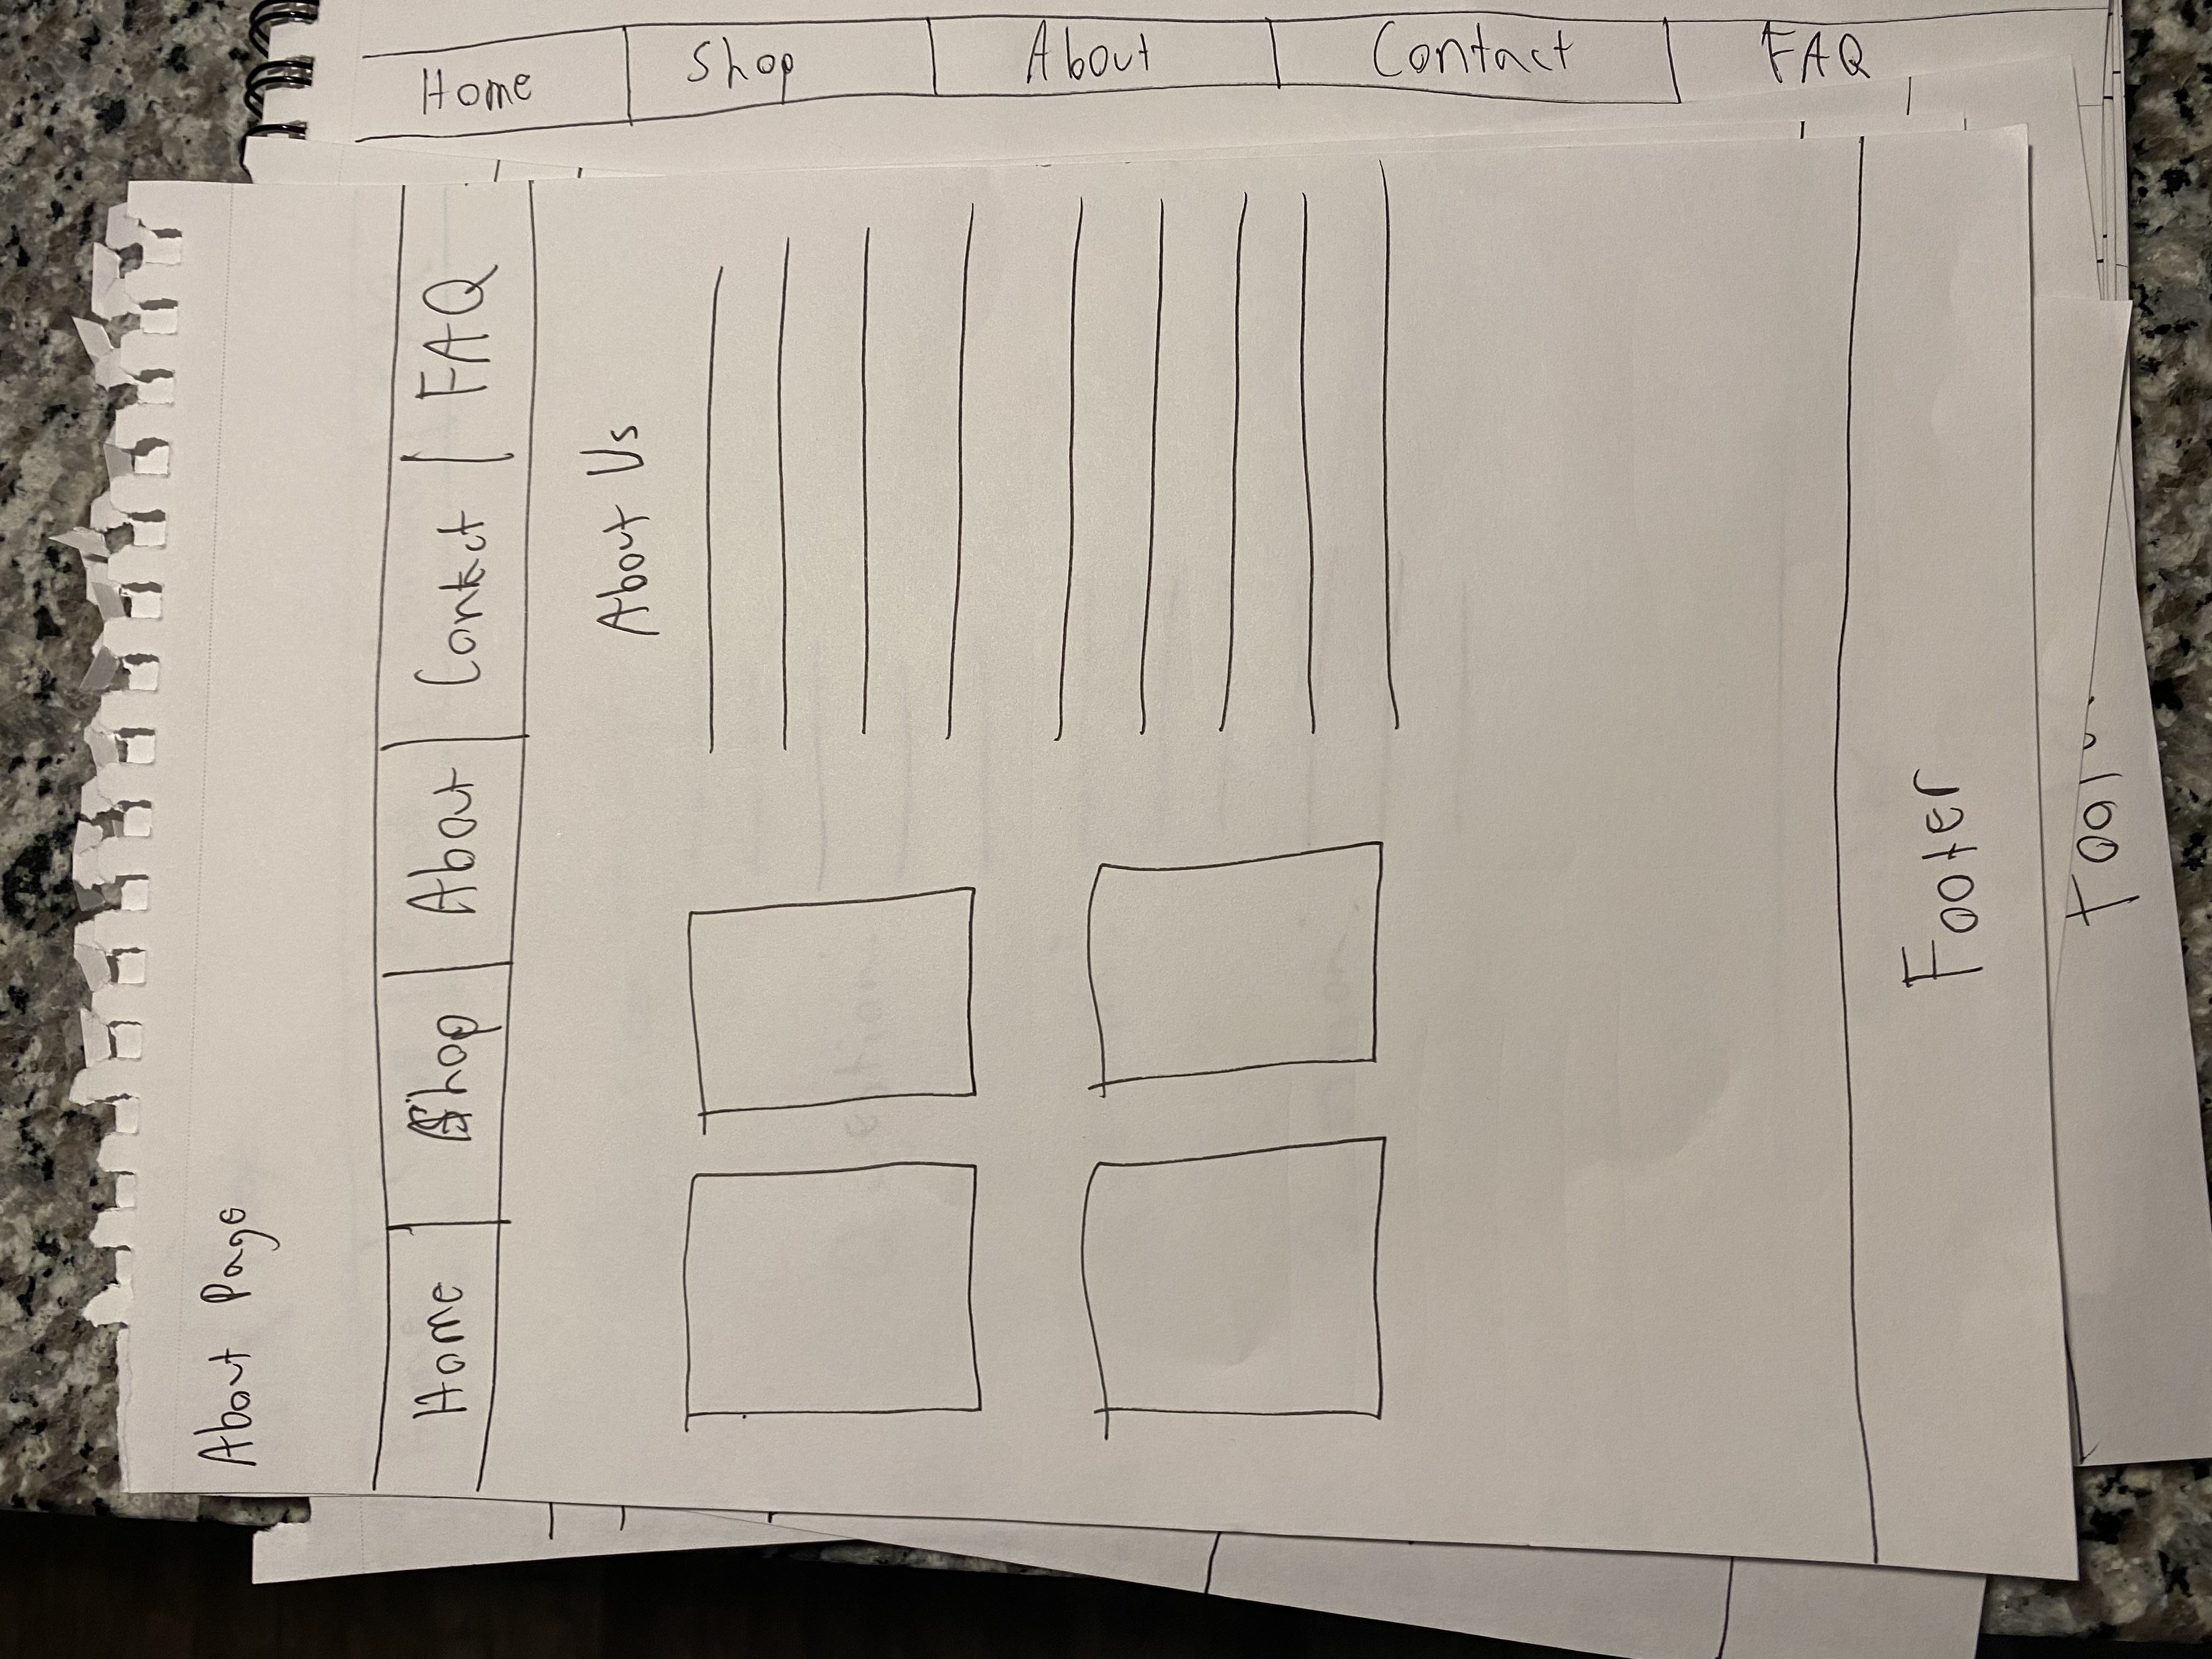 About Page
Home Shop About Contact FAQ
About Us
Footer
Home
Shop
About
Contact
FAQ